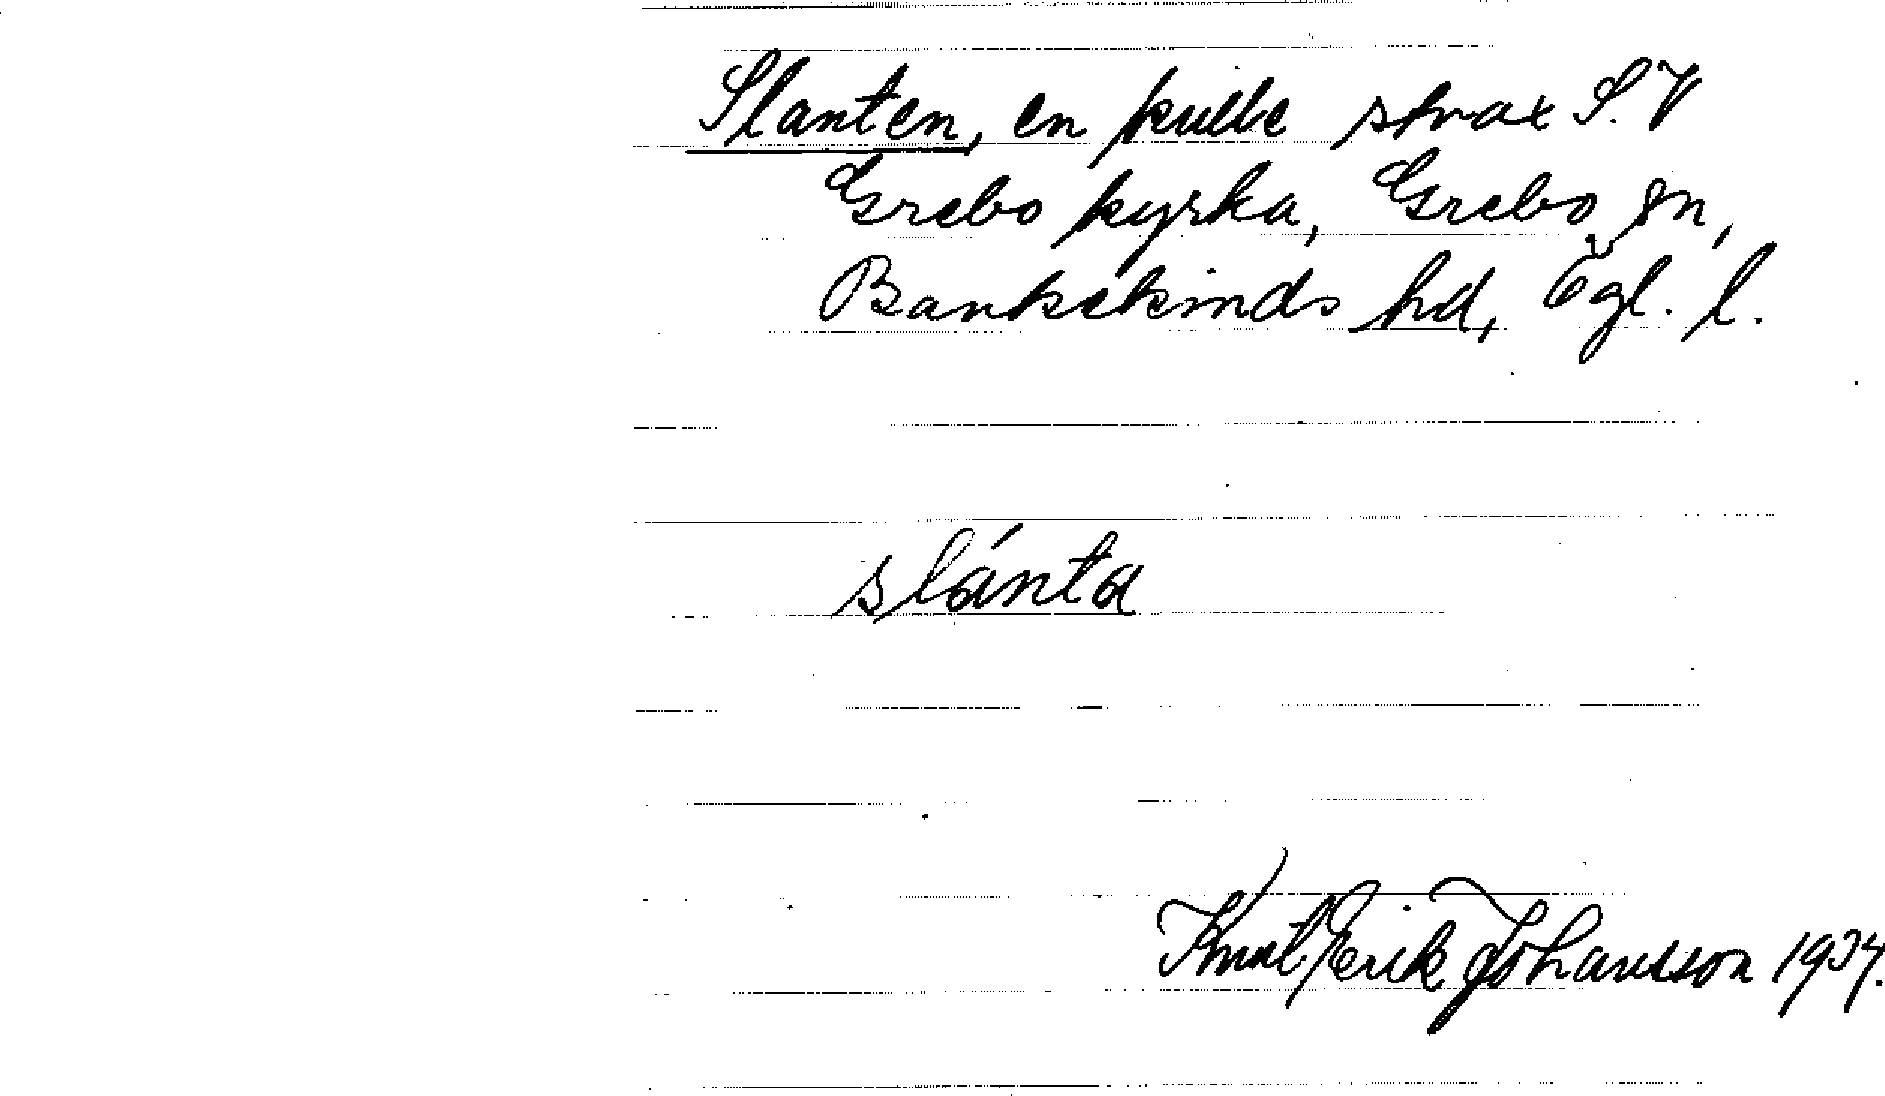 Slanten, en kulle strax S.V
Grebo kyrka, Grebo sn,
Bankekinds hd, Ögl. l.
slánta
Knut Erik Johansson 1934.